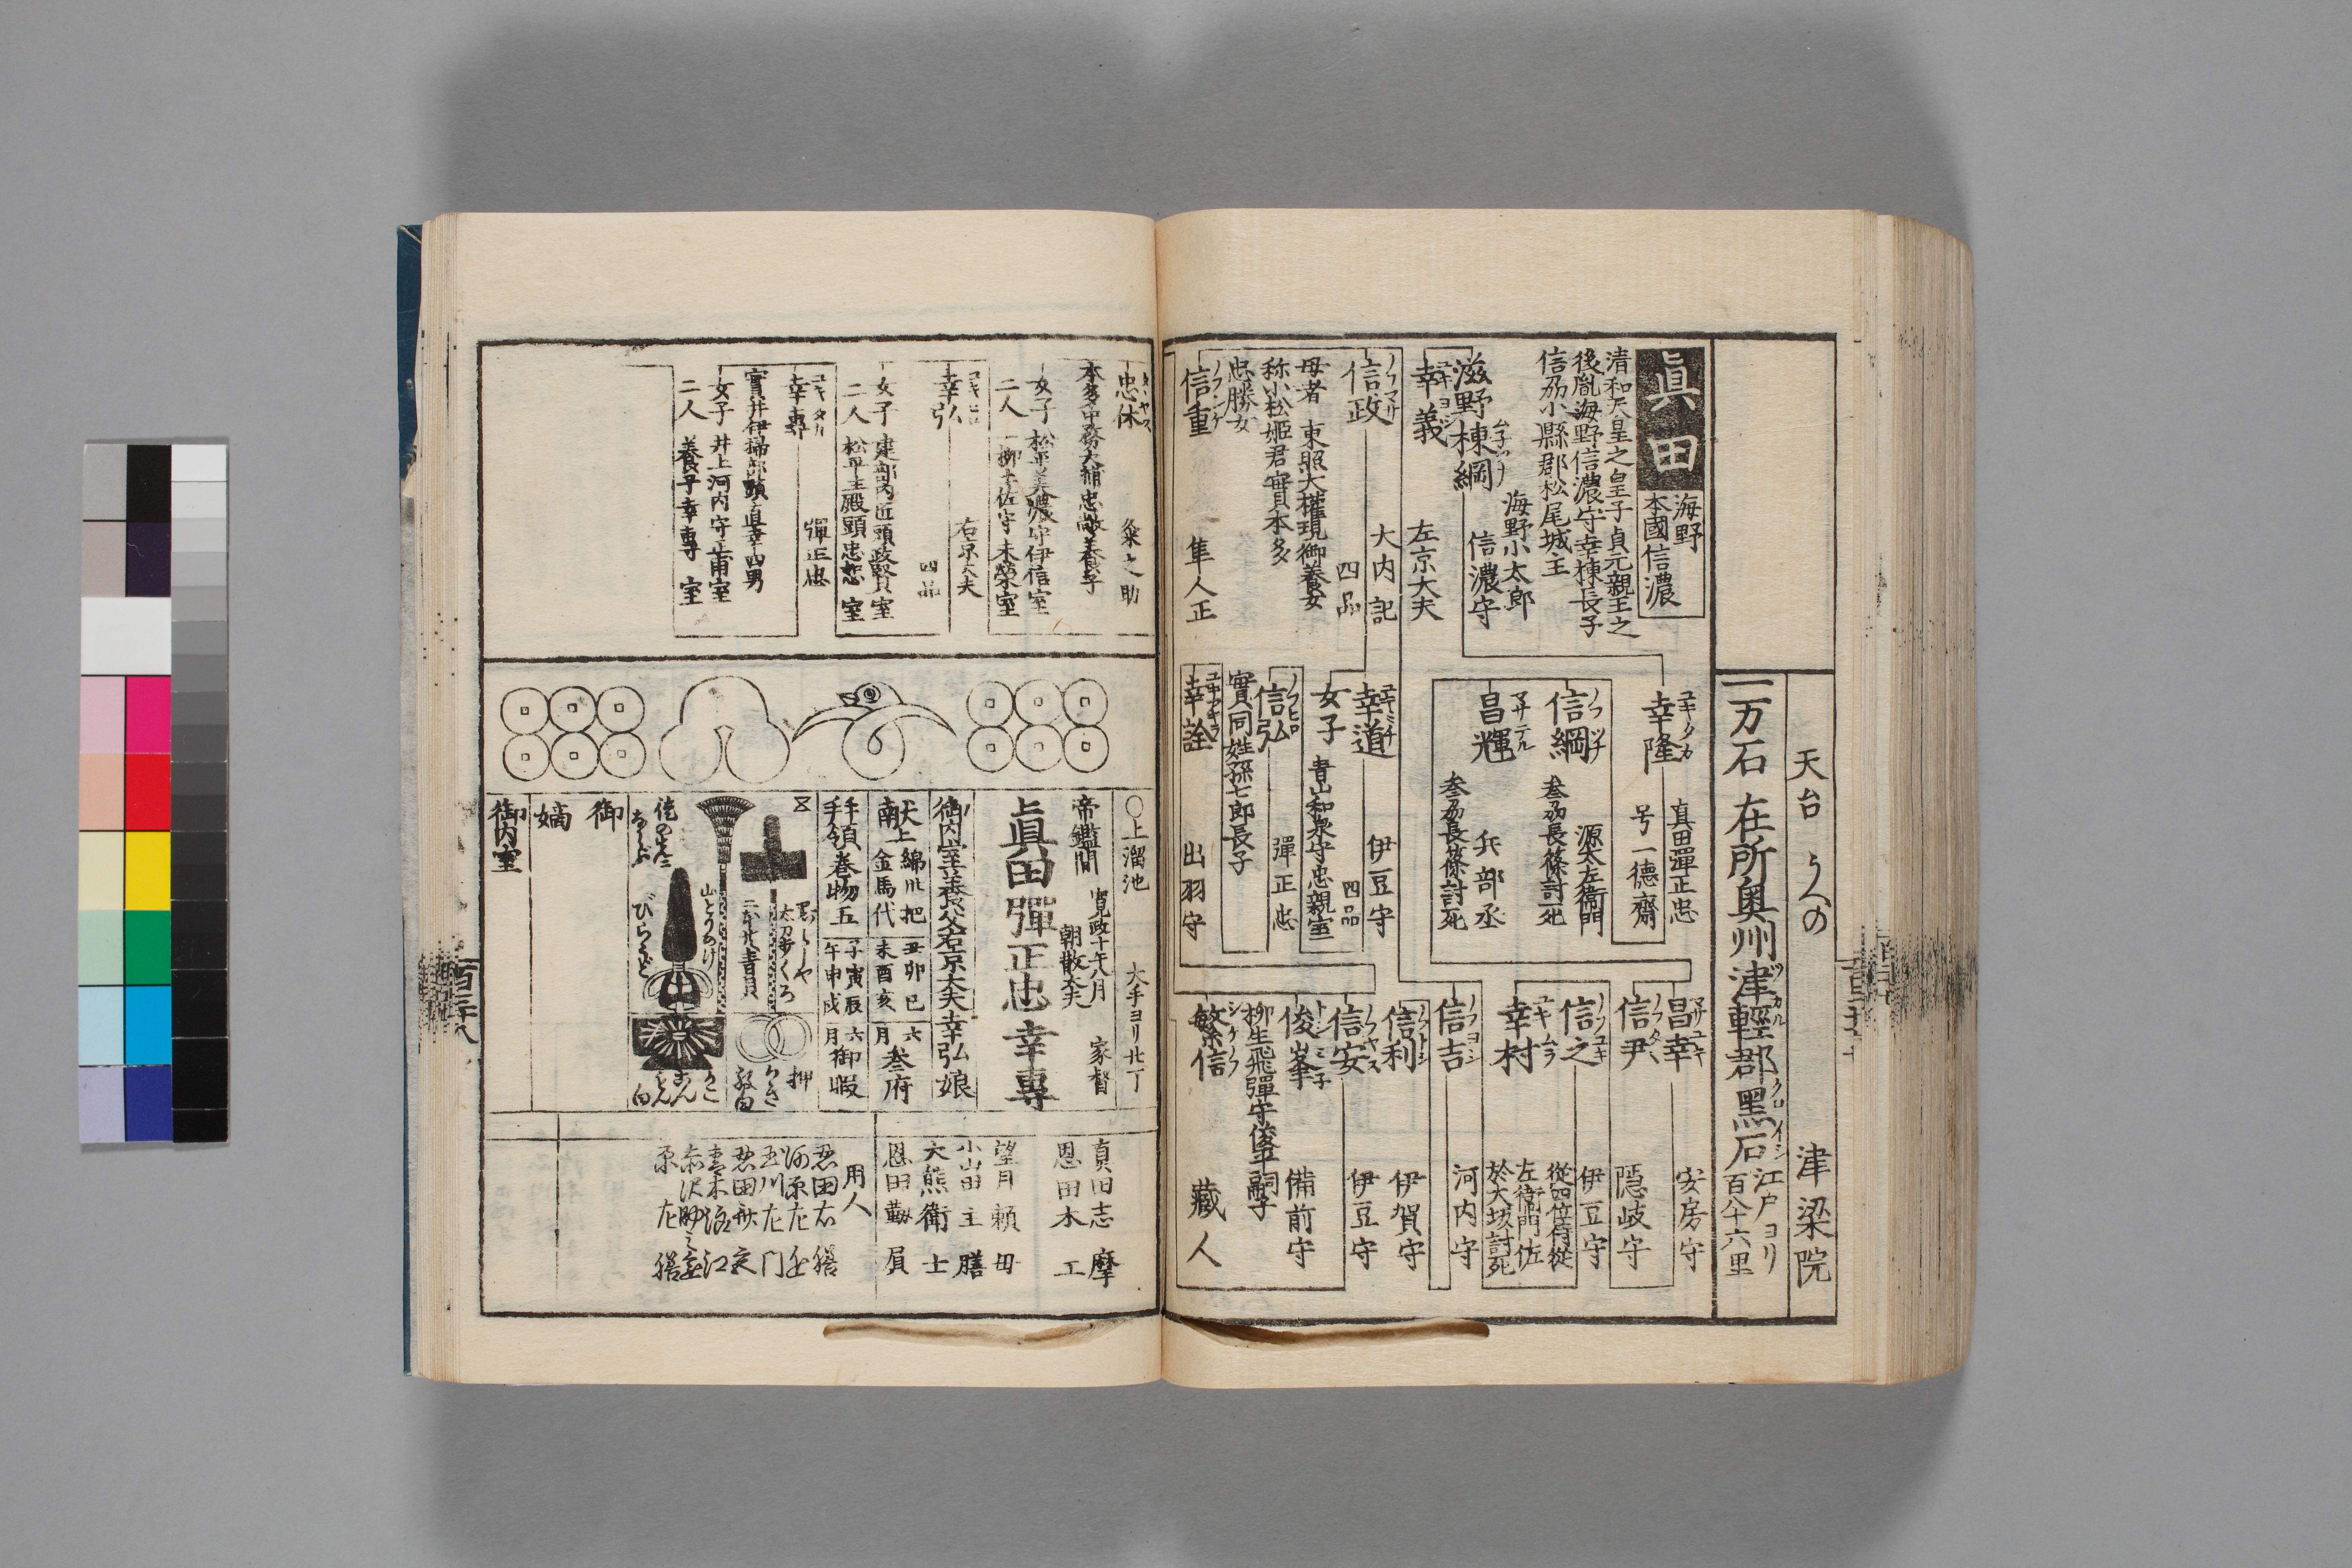 天台 うへの 津梁院
一万石 在所奥州津輕郡黒石 江戸ヨリ百八十六里
眞田 海野
本國信濃
清和天皇之皇子貞元親王之
後胤海野信濃守幸棟長子
信刕小縣郡松尾城主
海野小太郎
滋野棟綱 信濃守
幸隆 ユキタカ
真田彈正忠
号一德齋
信綱 ノブツナ
源太左衛門
叁刕長篠討死
昌輝 マサテル
兵部丞
叁刕長篠討死
昌幸 マサユキ 安房守
信尹 ノフタヽ 隠岐守
信之 ノブユキ 伊豆守
從四位侍從
幸村 ユキムラ 左衛門佐
於大坂討死
信吉 ノブヨシ 河内守
幸義 ユキヨシ 左京大夫
信政 ノブマサ 大内記
四品
母者 東照大權現御養女
称小松姫君實本多
忠勝女
信重 ノブシゲ 隼人正
幸道 ユキミチ 伊豆守
四品
女子 青山和泉守忠親室
信弘 ノブヒロ 彈正忠
實同姓孫七郎長子
幸詮 出羽守
信利 ノブトシ 伊賀守
信安 ノブヤス 伊豆守
俊峯 備前守
柳生飛彈守俊平嗣子
繁信 シゲノブ 藏人
忠休 タヽヤス 粂之助
本多中務大輔忠敞養子
女子 松平美濃守伊信室
二人 一柳土佐守末榮室
幸弘 ユキヒロ 右京大夫
四品
女子 建部内匠頭政賢室
二人 松平主殿頭忠恕室
幸專 ユキタカ 彈正忠
實井伊掃部頭直幸四男
女子 井上河内守正甫室
二人 養子幸專室
○上溜池 大手ヨリ廿丁
帝鑑間 寛政十年八月 家督
朝散大夫
眞田彈正忠幸專
御内室養父右京大夫幸弘娘
献上 綿卅把 丑卯巳 六
金馬代 未酉亥 月 叁府
拝領 巻物五 子寅辰 六
午申戌 月 御暇
押
わき
山とりのけ
びらうど
御
嫡
御内室
真田志摩
恩田木工
望月頼母
小山田主膳
大熊衛士
恩田靱負
用人
百三十八